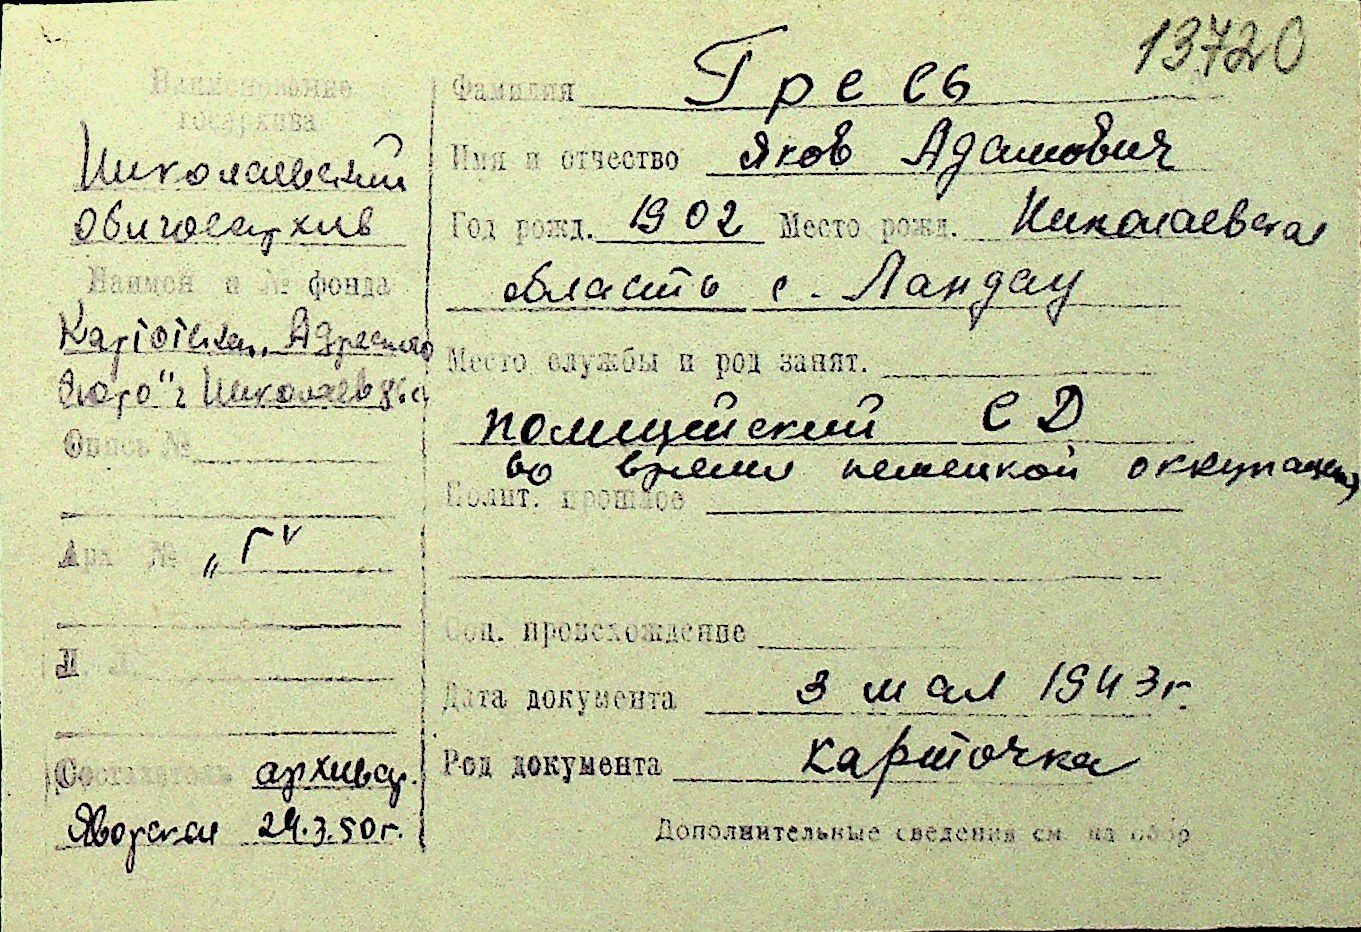 13720
Наименование
госархива
Николаевский
облгосархив
Наимен и № фонда
Картотека „Адресного
бюро" г Николаев
Опись №
Арх № „Г"
Л Л.
Составитель архивар.
Яворская 24.3.50г.
Фамилия Гресь
Имя и отчество Яков Адамович
Год рожд. 1902 Место рожд. Николаевская
область с. Ландау
Место службы и род занят.
полицейский СД
во время немецкой оккупации
Полит. прошлое
Соц. происхождение
Дата документа 3 мая 1943г.
Род документа карточка
Дополнительные сведения см на обор